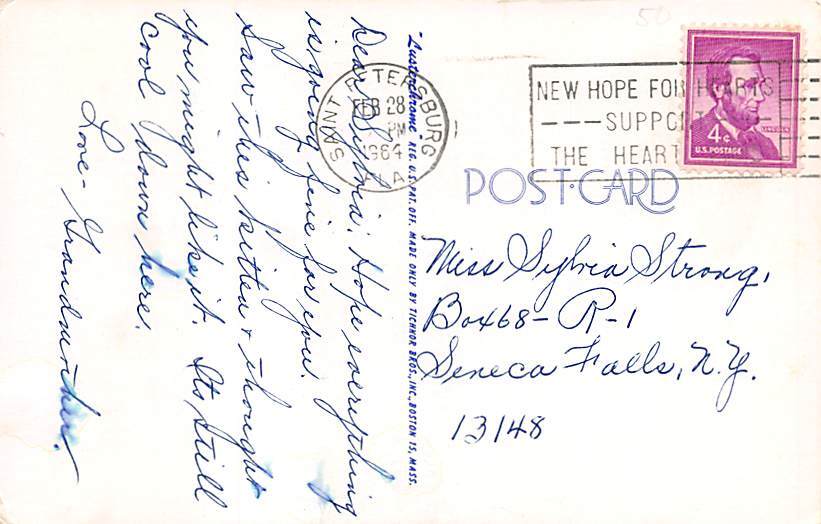 50
SAINT PETERSBURG
FEB 28
PM
1964
FLA
NEW HOPE FOR HEARTS
---SUPPORT
THE HEART
4¢
U.S. POSTAGE
LINCOLN
POST CARD
"Lusterchrome REG. U.S. PAT. OFF. MADE ONLY BY TICHNOR BROS., INC., BOSTON 15, MASS.
Dear Sylvia: Hope everything
is going fine for you.
Saw this kitten & thought
you might like it. Its still
cool down here.
Love - Grandmother.
Miss Sylvia Strong,
Box 68 - R-1
Seneca Falls, N.Y.
13148